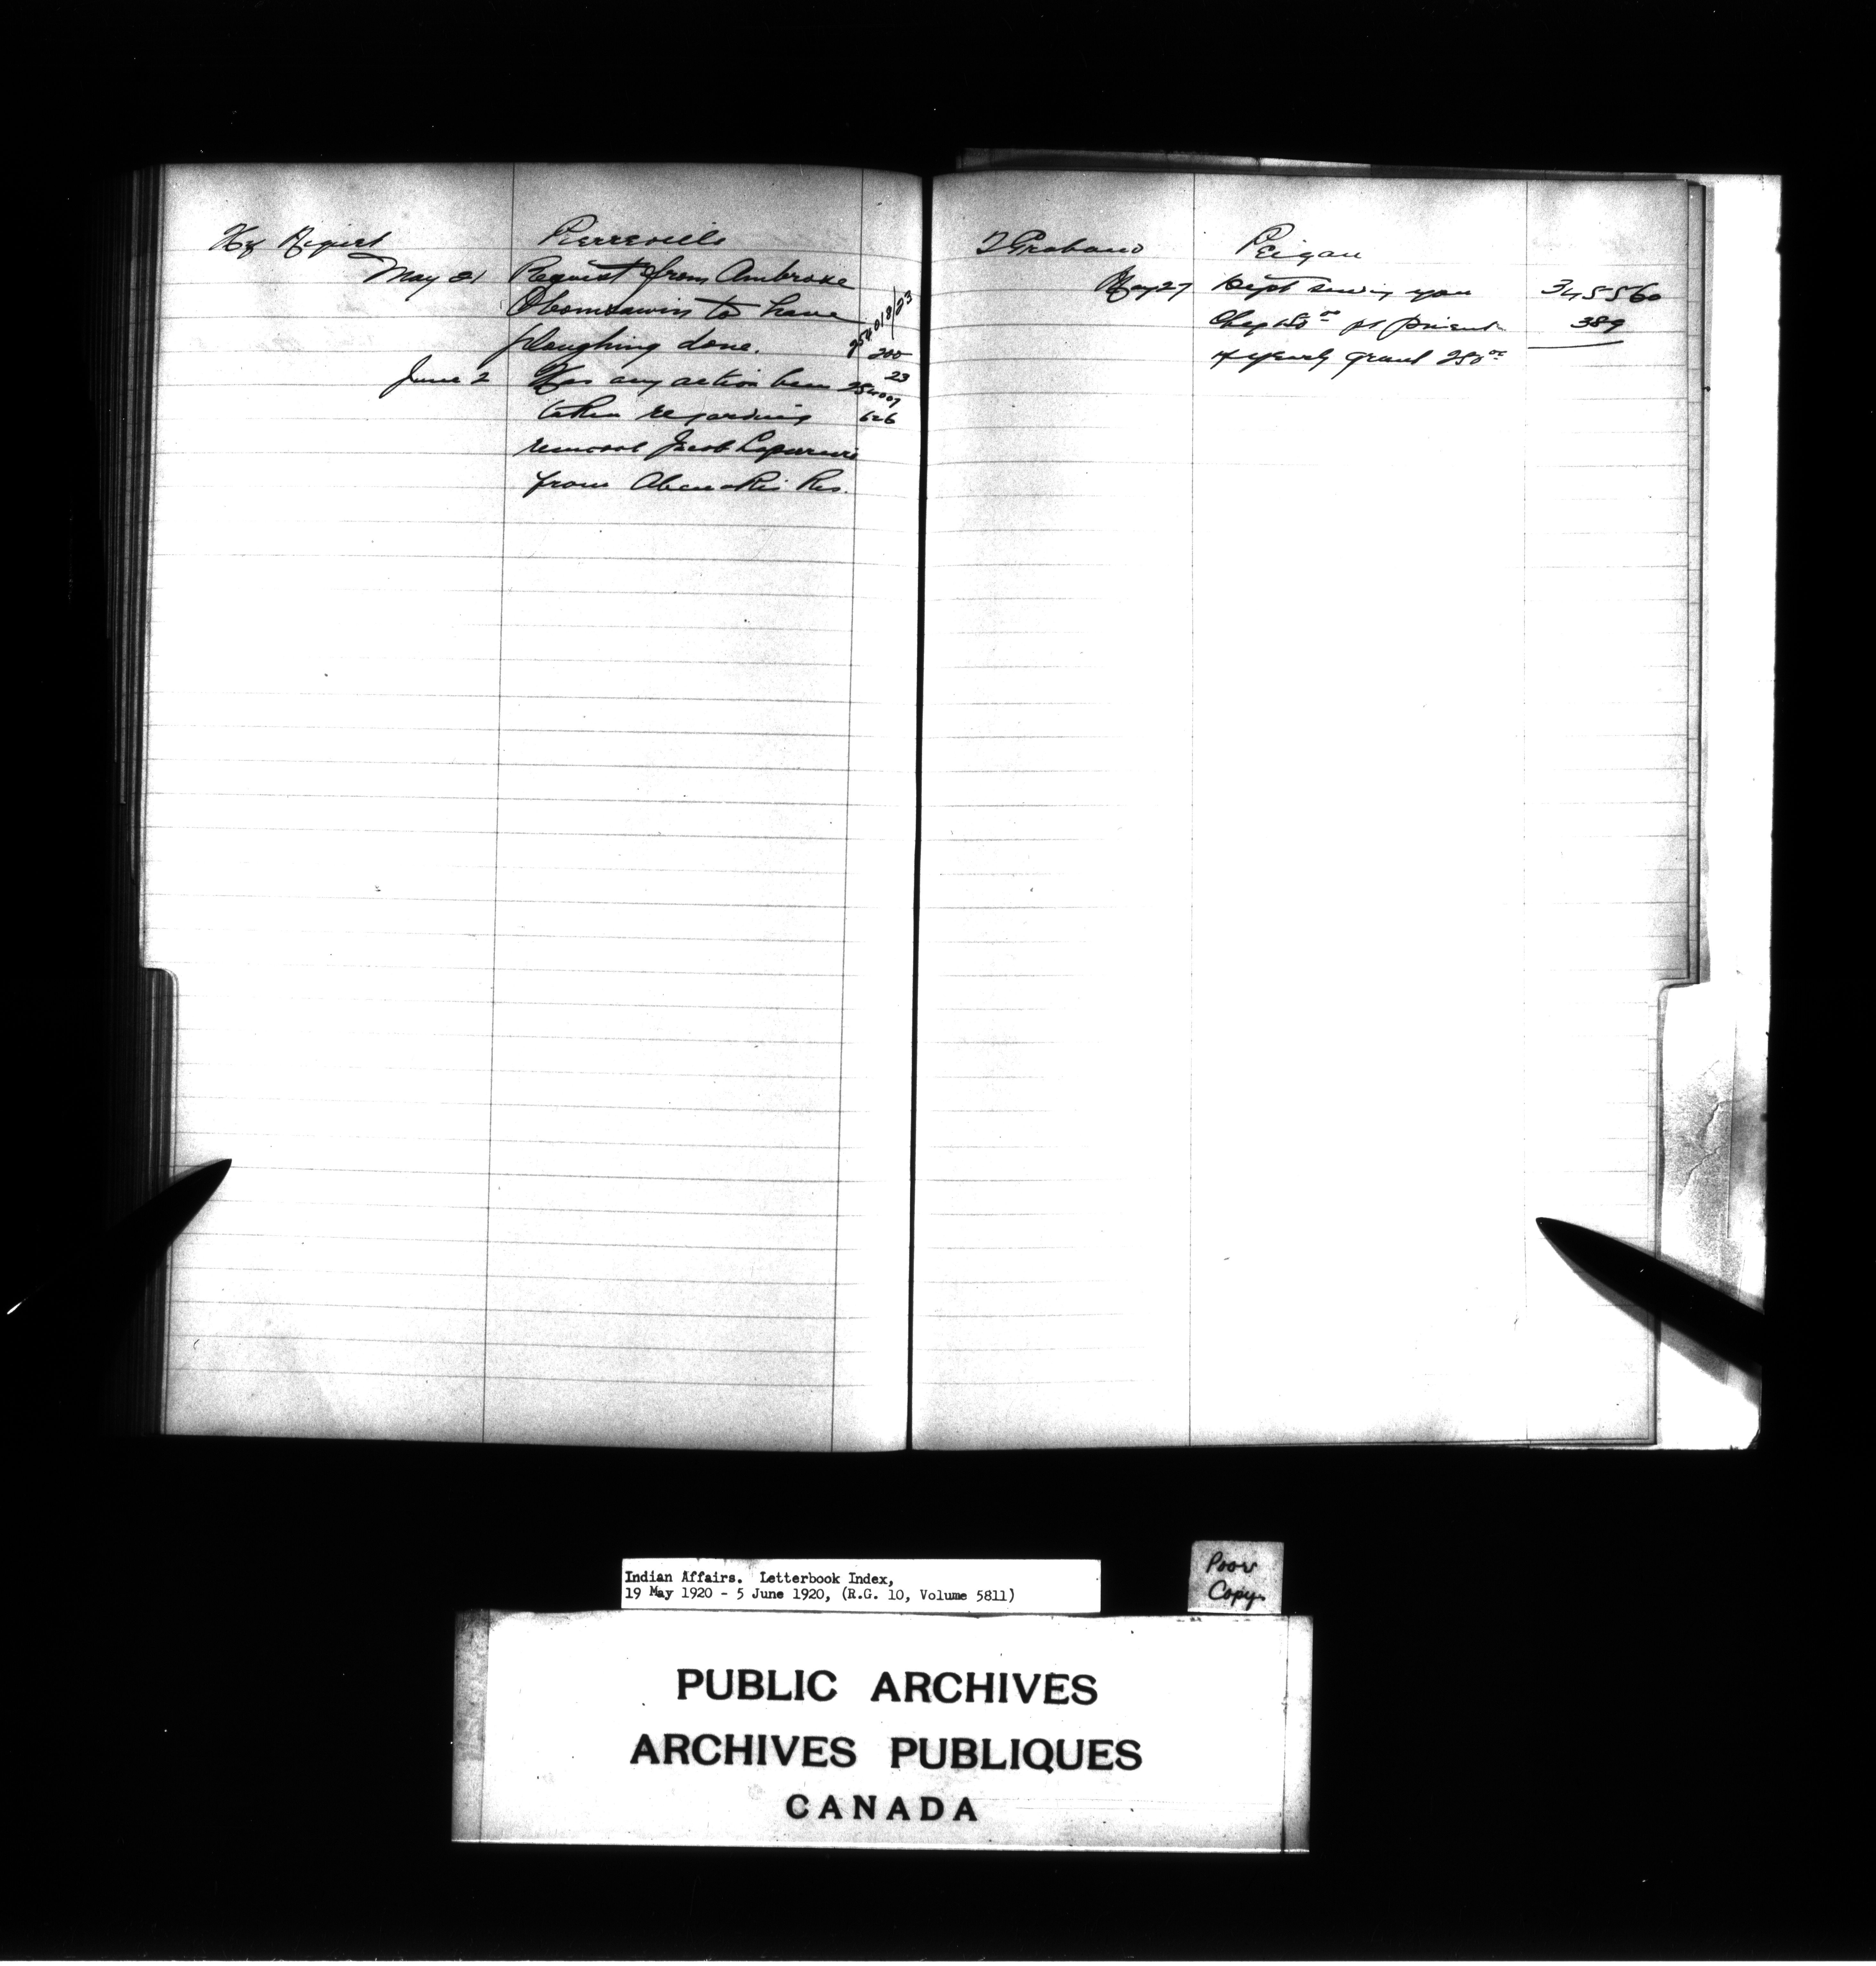 Pierreville
May 21 Request from Ambroise
Obomsawin to have
ploughing done.
200
23
June 2 Has any action been 254007
taken regarding 626
removal Jacob
from Abenakis Res.
T Graham Peigan
May 27 Dept sending you 345560
Chq 150.00 pt 389
yearly grant 250.00
Poor
Copy
Indian Affairs. Letterbook Index,
19 May 1920 - 5 June 1920, (R.G. 10, Volume 5811)
PUBLIC ARCHIVES
ARCHIVES PUBLIQUES
CANADA